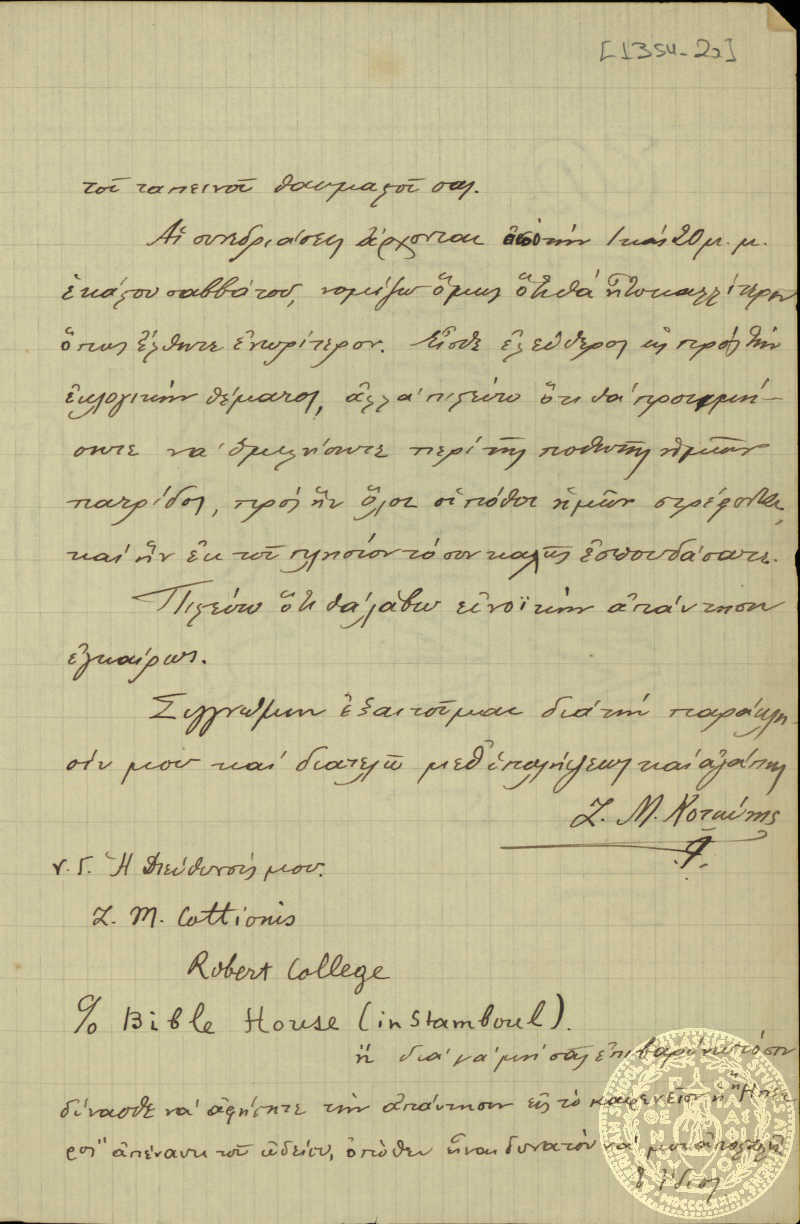 [1354-2α]
τοῦ ταπεινοῦ θαυμαστοῦ σας.
Αἱ συνεδριάσεις ἄρχονται ἀπὸ τὴν 1 καὶ 20 μ.μ.
ἑκάστου σαββάτου, νομίζω ὅμως ὅτι θὰ ἦτο καλλίτερον
ὅπως ἔλθητε ἐνωρίτερον. Εἶσθε ἐλεύθερος ὡς πρὸς τὴν
ἐκλογικὴν θέματος, ἀλλὰ πιστεύω ὅτι θὰ προτιμή-
σητε νὰ ὁμιλήσητε περὶ τῆς ποθητῆς ἡμῶν
πατρίδος, πρὸς ἣν ὅλοι οἱ πόθοι ἡμῶν στρέφονται,
καὶ ἣν ἐκ τοῦ πλησίον τόσον καλῶς ἐσπουδάσατε.
Πιστεύω ὅτι θὰ λάβω εὐνοϊκὴν ἀπάντησιν
ἐγκαίρως.
Συγγνώμην ἐξαιτοῦμαι διὰ τὴν παράκλη-
σίν μου καὶ διατελῶ μεθ' ὑπολήψεως καὶ ἀγάπης
Ζ. Μ. Κοτιώνης
ν.Γ. Ἡ Διεύθυνσίς μου.
Z. M. Cottionis
Robert College
c/o Bible House (in Stamboul).
ἢ διὰ νὰ μὴ σᾶς ἐπιβαρύνω τόσον
δύνασθε νὰ ἀφήσητε τὴν ἀπάντησιν εἰς τὸ καφενεῖον ἡ "Ἤπει
ρος" ἀπέναντι τοῦ ᾠδείου, ὁπόθεν εἶναι δυνατὸν νὰ μοὶ ἀποσταλῇ
ὁ ἴδιος